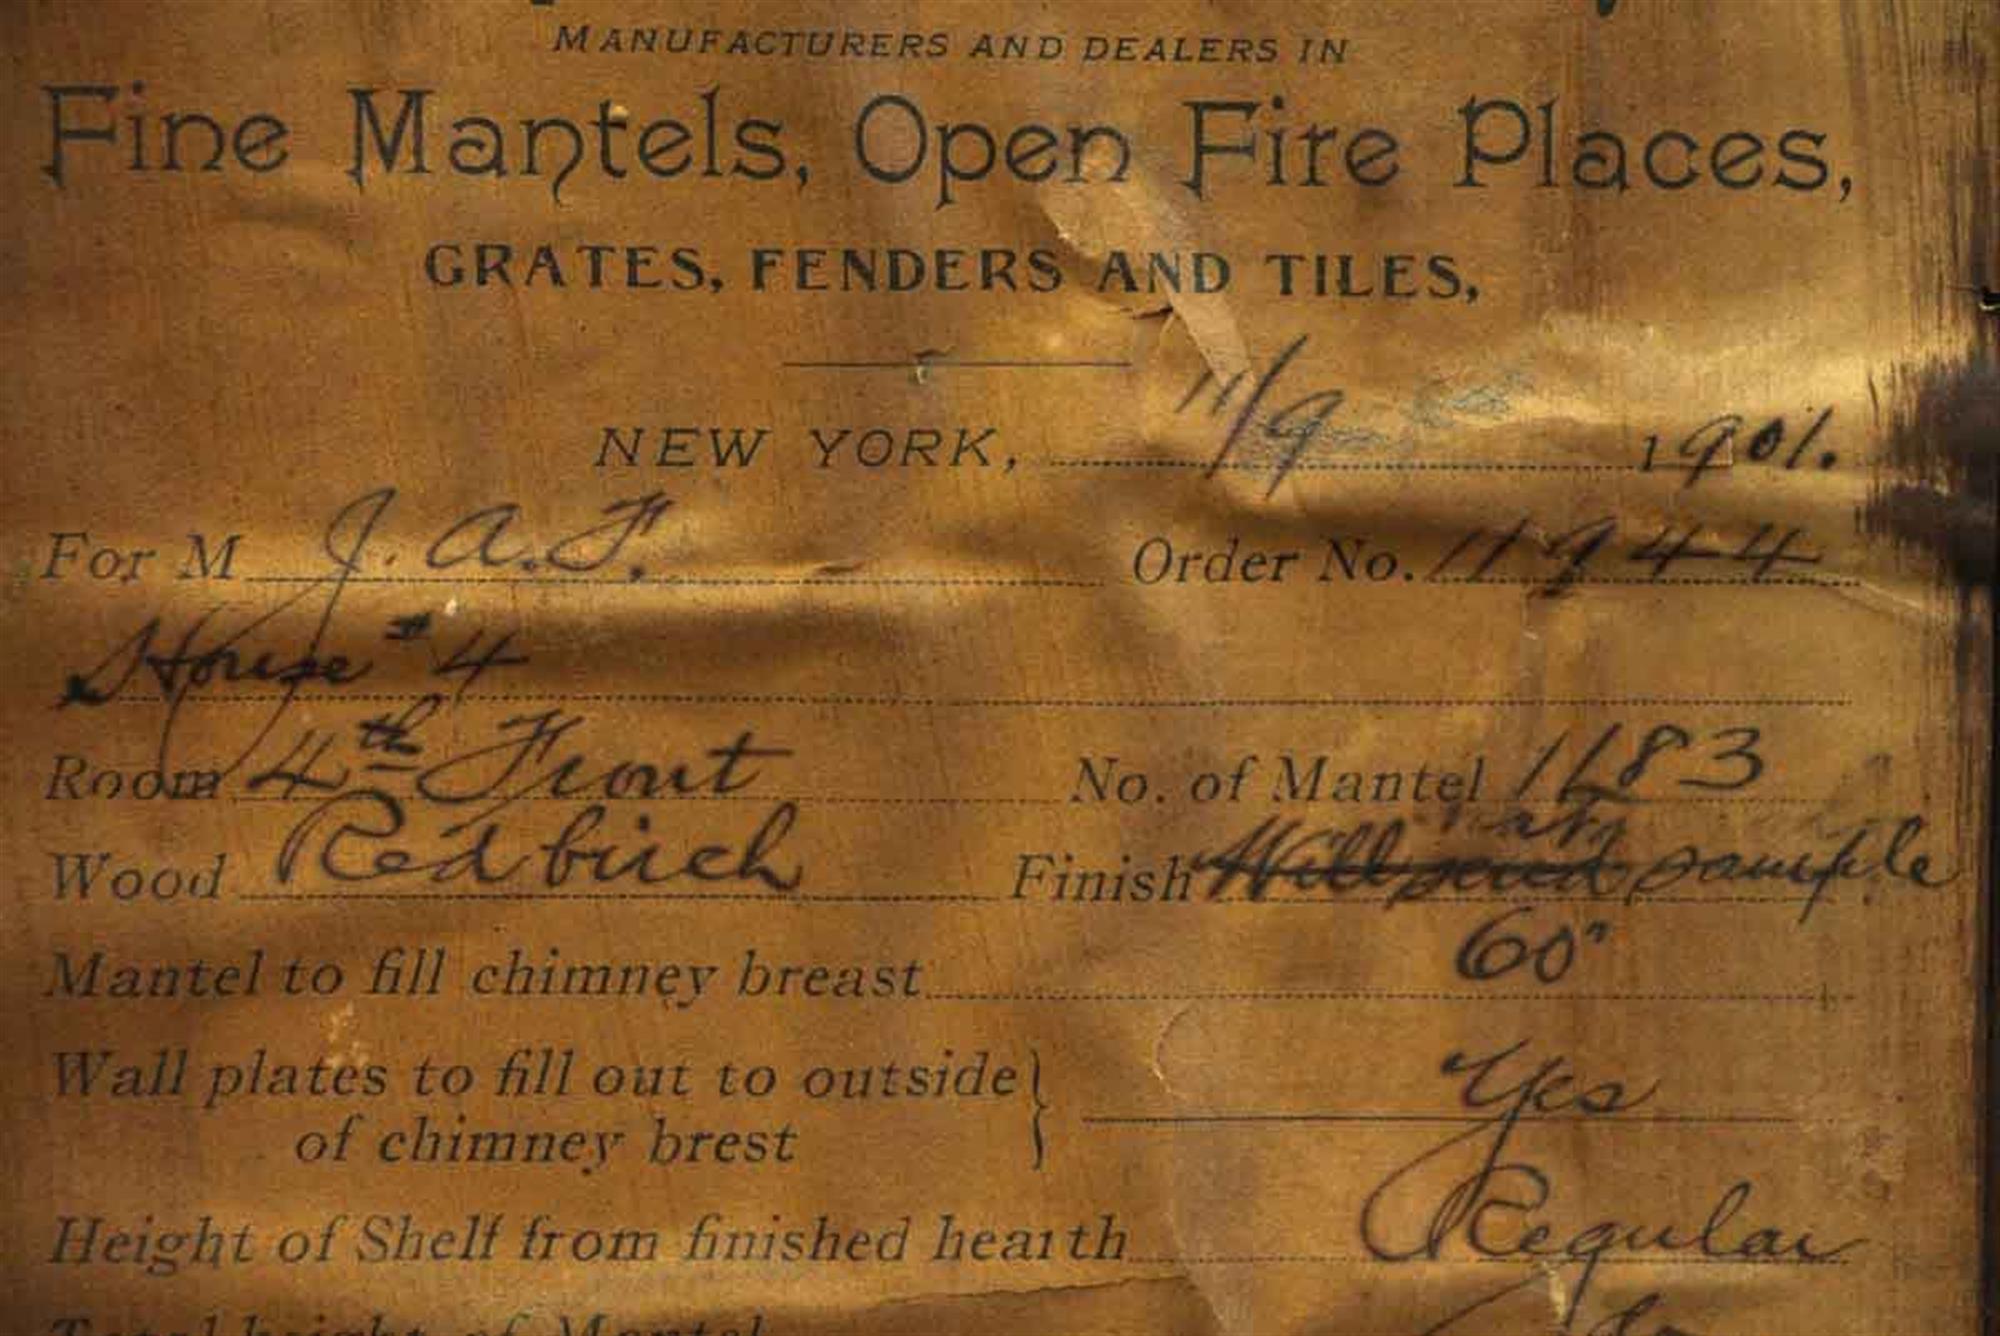 MANUFACTURERS AND DEALERS IN
Fine Mantels, Open Fire Places,
GRATES, FENDERS AND TILES,
NEW YORK, 11/9 1901.
For M J. A. F. Order No. 11944
House #4
Room 4th Front No. of Mantel 1683
Wood Red birch Finish Will send sample
Mantel to fill chimney breast 60"
Wall plates to fill out to outside
of chimney brest Yes
Height of Shelf from finished hearth Regular
Total height of Mantel